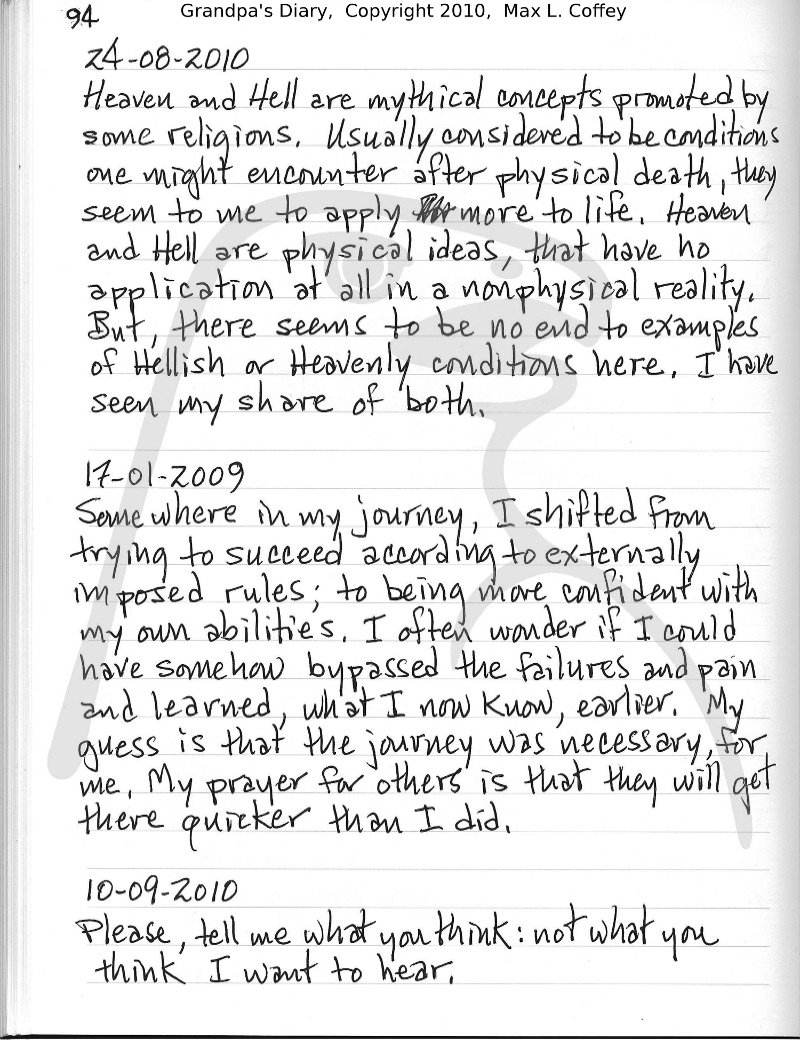 94
Grandpa's Diary, Copyright 2010, Max L. Coffey
24-08-2010
Heaven and Hell are mythical concepts promoted by
some religions. Usually considered to be conditions
one might encounter after physical death, they
seem to me to apply more to life. Heaven
and Hell are physical ideas, that have no
application at all in a nonphysical reality.
But, there seems to be no end to examples
of Hellish or Heavenly conditions here. I have
seen my share of both.
17-01-2009
Somewhere in my journey, I shifted from
trying to succeed according to externally
imposed rules; to being more confident with
my own abilities. I often wonder if I could
have somehow bypassed the failures and pain
and learned, what I now know, earlier. My
guess is that the journey was necessary, for
me. My prayer for others is that they will get
there quicker than I did.
10-09-2010
Please, tell me what you think: not what you
think I want to hear.